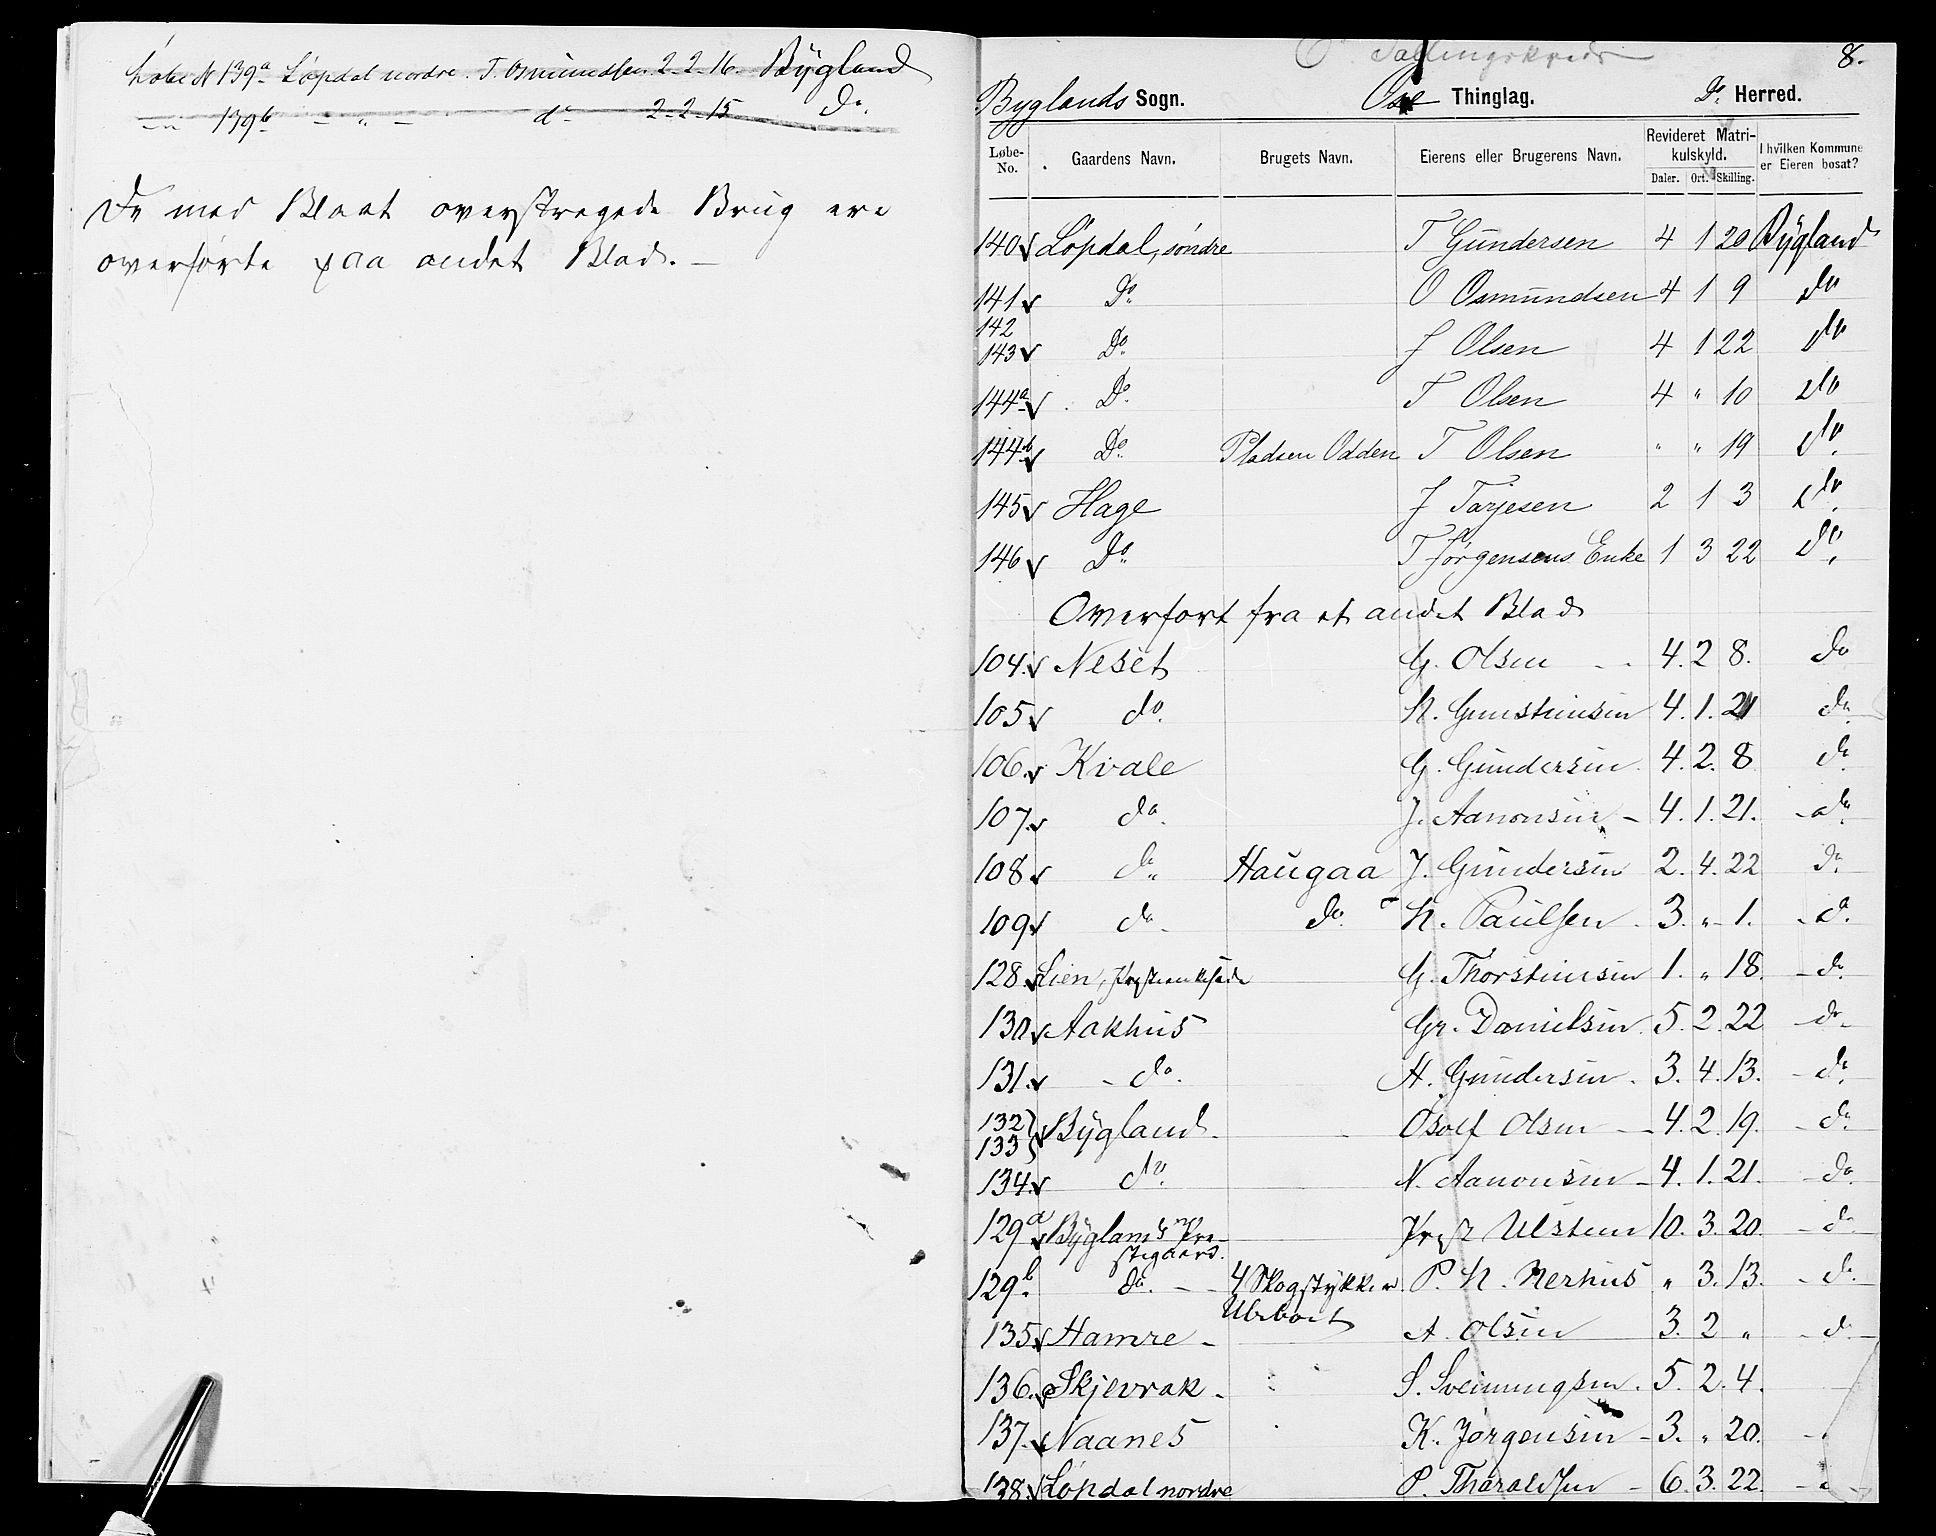 Løbe N 139a Løpdal nordre. T. Osmundsen 2-2-16. Bygland
139b - " - do 2-2-15 do.
De med Blaat overstregede Brug ere
overførte paa andet Blad. -
Tællingskreds
8.
Byglands Sogn. Ose Thinglag. Do. Herred.
Løbe-No. Gaardens Navn. Brugets Navn. Eierens eller Brugerens Navn. Revideret Matrikulskyld. Daler. Ort. Skilling. I hvilken Kommune er Eieren bosat?
140 Løpdal, søndre T Gundersen 4 1 20 Bygland
141 Do. O Osmundsen 4 1 9 do
142
143 Do. J Olsen 4 1 22 do
144a Do. T Olsen 4 " 10 do
144b Do. Pladsen Odden T Olsen " " 19 do.
145 Hage J Tarjesen 2 1 3 do.
146 Do. T Jørgensens Enke 1 3 22 do.
Overført fra et andet Blad
104. Neset G. Olsen 4. 2 8. do
105 do. K. Gunsteinsen 4. 1. 21 do.
106. Kvale G. Gundersen 4. 2. 8 do.
107. do. J. Aanonsen - 4. 1. 21. do.
108. do. Haugaa J. Gundersen 2. 4. 22 do.
109 do. do. K. Paulsen 3. " 1. do.
128. Lien, Præsteenkesæde G. Thorsteinsen 1. " 18. do.
130 Aakhus Gr. Danielsen 5. 2. 22 do.
131. do. H. Gundersen. 3. 4. 13. do.
132
133 } Bygland Osolf Olsen 4. 2. 19. do.
134. do. N. Aanonsen - 4. 1. 21. do.
129a Byglands Præ-
stegaard. Præst Ulstein 10. 3. 20. do
129b. do. 4 Skogstykker P. K. Nerhus " 3. 13. do.
Ubeboet
135. Hamre - A. Olsen 3. 2 " do.
136. Skjevrak - S. Sveinungsen. 5. 2. 4.
137. Naanes K. Jørgensen - 3. " 20.
138. Løpdal nordre P. Tharaldsen - 6. 3. 22.